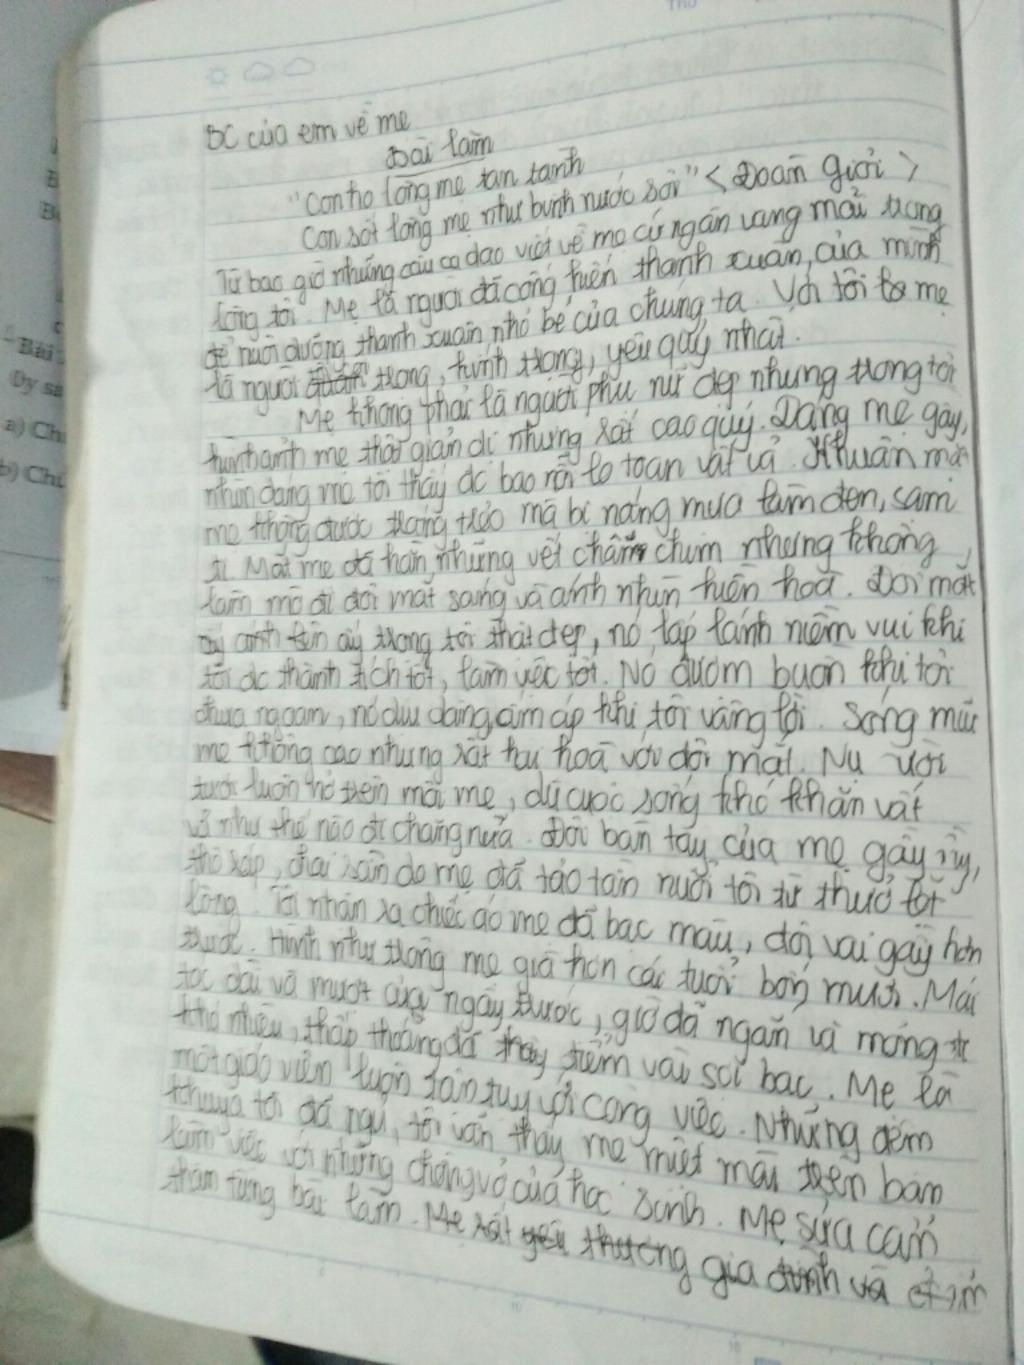 THU
BC của em về mẹ
Bài làm
"Con ho lòng mẹ tan tành
Con sốt lòng mẹ như bình nước sôi" < Đoàn Giỏi >
Từ bao giờ những câu ca dao viết về mẹ cứ ngân vang mãi trong
lòng tôi. Mẹ là người đã cống hiến thanh xuân của mình
để nuôi dưỡng thanh xuân nhỏ bé của chúng ta. Với tôi mẹ
là người trọng, kính trọng, yêu quý nhất.
Mẹ không phải là người phụ nữ đẹp nhưng trong tôi
hình ảnh mẹ thật giản dị nhưng rất cao quý. Dáng mẹ gầy,
nhìn dáng mẹ tôi thấy đc bao nỗi lo toan vất vả. Khuôn mặt
mẹ không được trắng trẻo mà bị nắng mưa làm đen, sạm
đi. Mắt mẹ đã hằn những vết chân chim nhưng không
làm mờ đi đôi mắt sáng và ánh nhìn hiền hoà. Đôi mắt
ấy trong tôi thật đẹp, nó lấp lánh niềm vui khi
tôi đc thành tích tốt, làm việc tốt. Nó đượm buồn khi tôi
chưa ngoan, nó dịu dàng ấm áp khi tôi vâng lời. Sống mũi
mẹ không cao nhưng rất hài hoà với đôi mắt. Nụ cười
tươi luôn nở trên môi mẹ, dù cuộc sống khó khăn vất
vả như thế nào đi chăng nữa. Đôi bàn tay của mẹ gầy gầy,
thô ráp, chai sần do mẹ đã tảo tần nuôi tôi từ thuở lọt
lòng. Tôi nhận ra chiếc áo mẹ đã bạc màu, đôi vai gầy hơn
trước. Hình như trông mẹ già hơn cái tuổi bốn mươi. Mái
tóc dài và mượt của ngày trước, giờ đã ngắn và mỏng đi
khá nhiều, thấp thoáng đã thấy điểm vài sợi bạc. Mẹ là
một giáo viên luôn tận tuỵ với công việc. Những đêm
khuya tôi đã ngủ, tôi vẫn thấy mẹ miệt mài trên bàn
làm việc với những chồng vở của học sinh. Mẹ sửa cẩn
thận từng bài làm. Mẹ rất yêu thương gia đình và